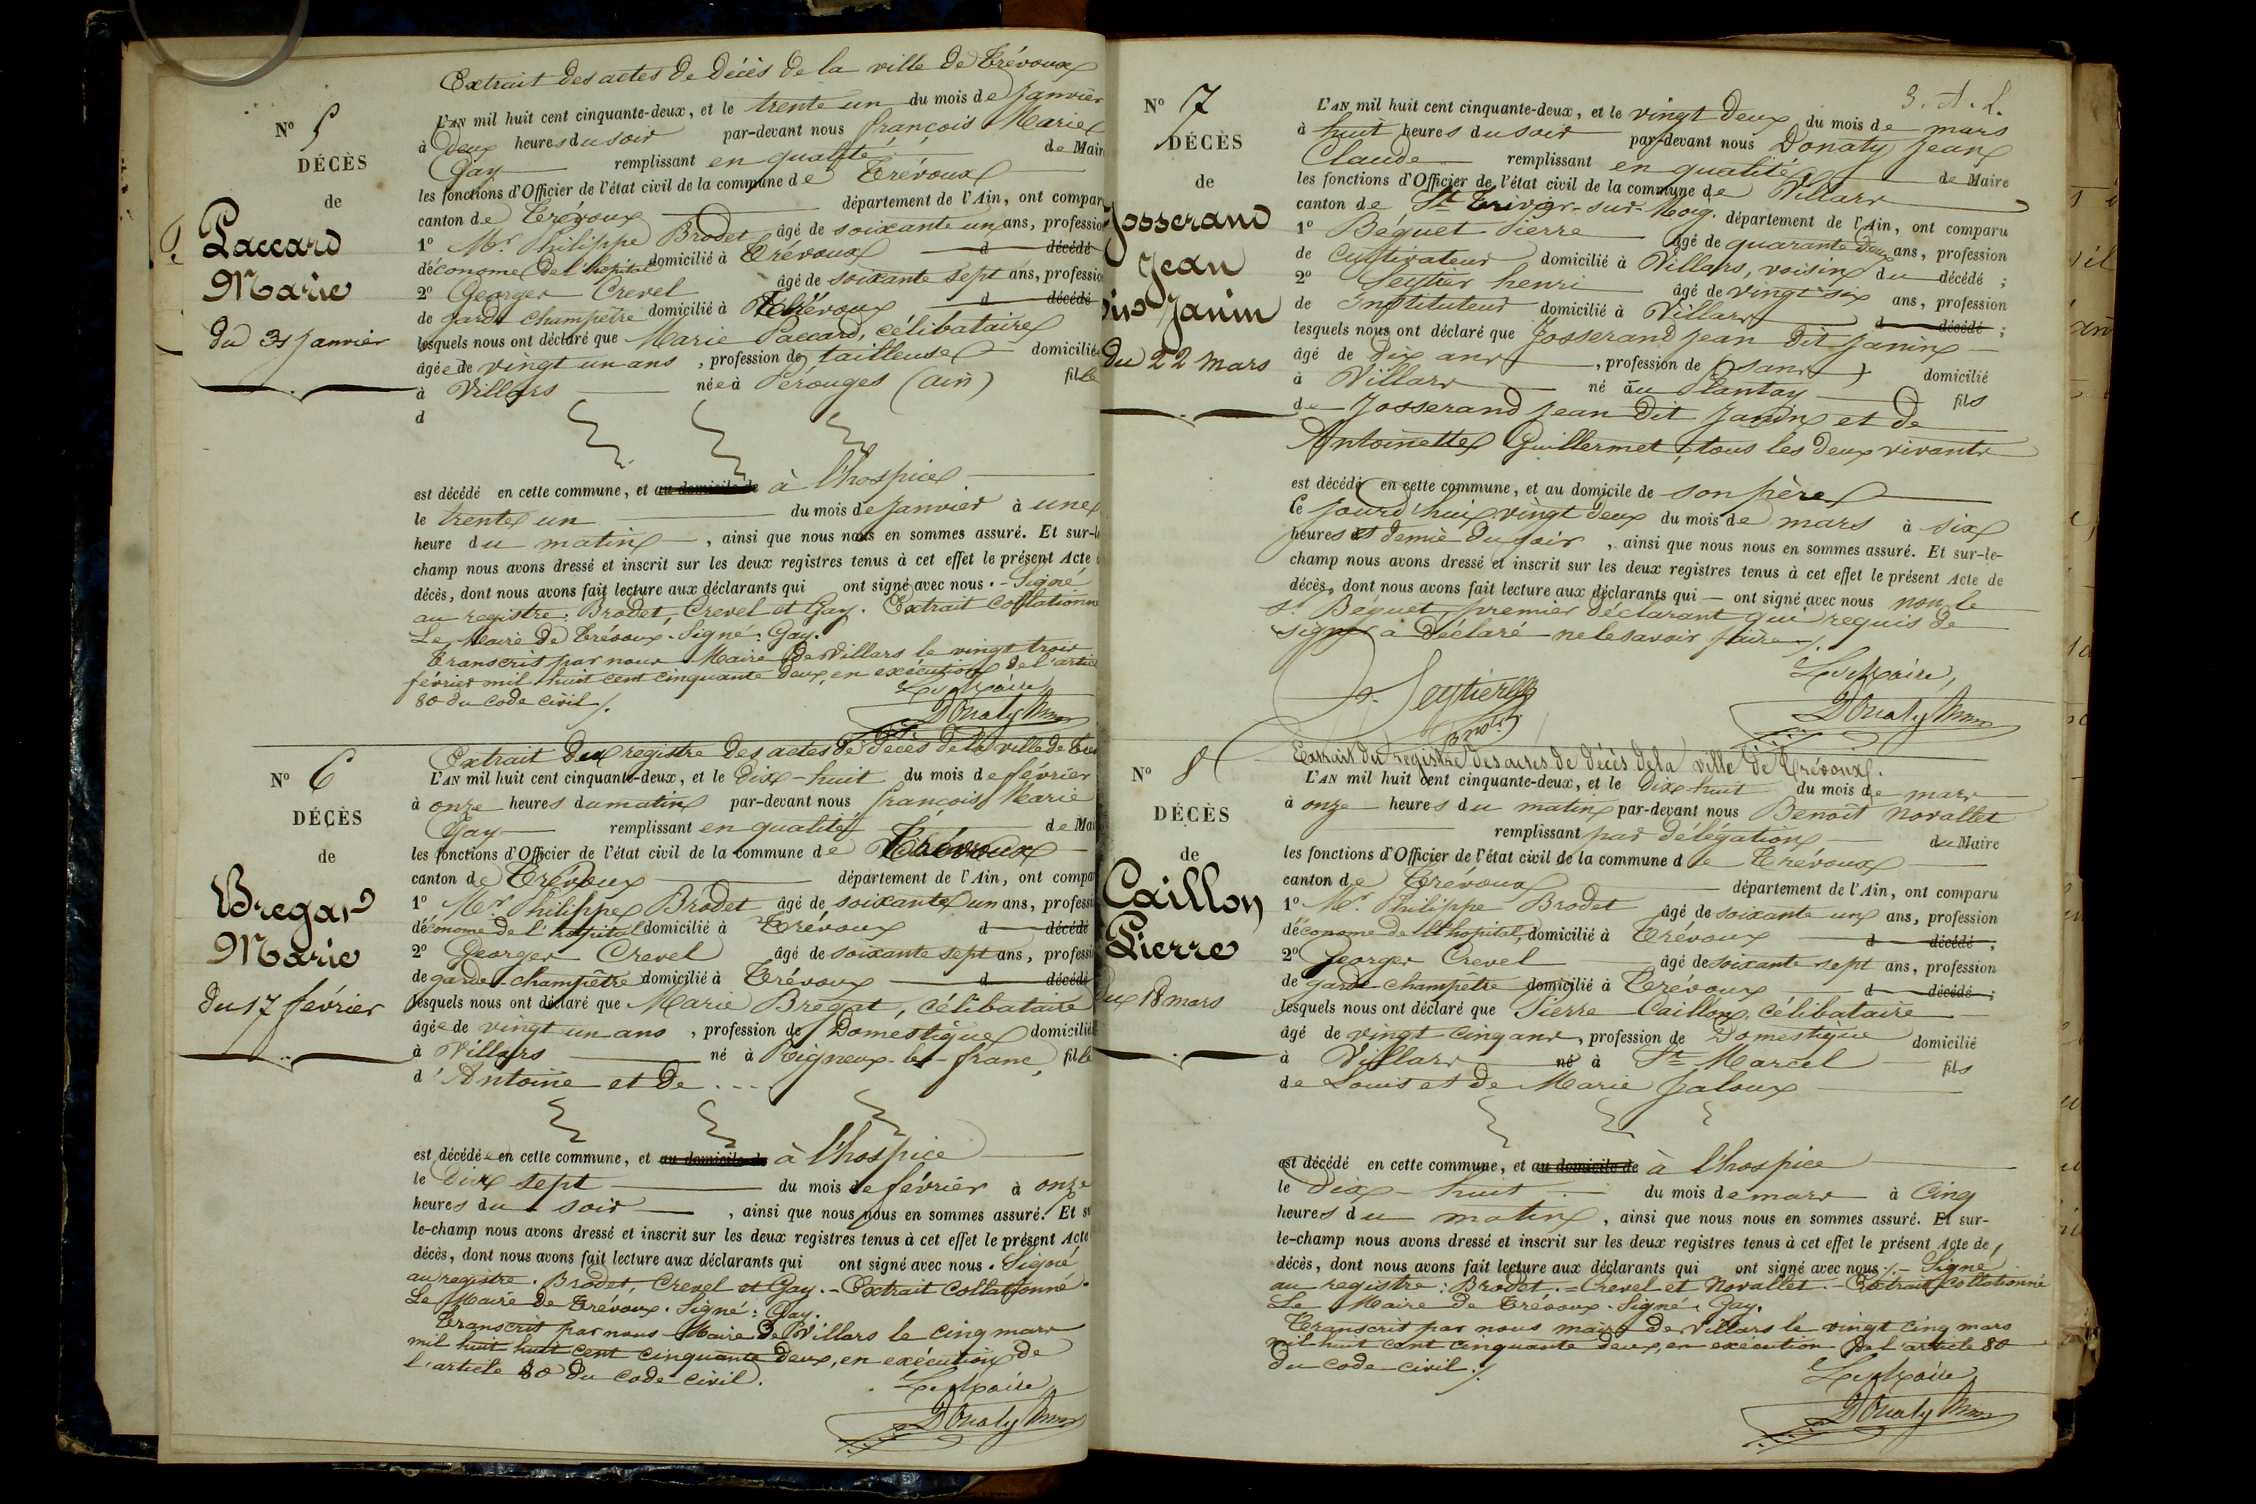 Extrait des actes de Décès de la ville de Trévoux
N° 5
DÉCÈS
de
Paccard
Marie
du 31 Janvier
L'AN mil huit cent cinquante-deux, et le trente un du mois de Janvier
à deux heures du soir par-devant nous françois Marie
Gay remplissant en qualité de Maire
les fonctions d'Officier de l'état civil de la commune de Trévoux
canton de Trévoux département de l'Ain, ont compar
1° Mr Philippe Brodet âgé de soixante un ans, profession
d'économe de l'hopital domicilié à Trévoux d décédé
2° Georges Crevel âgé de soixante sept ans, profession
de garde champêtre domicilié à Trévoux d décédé
lesquels nous ont déclaré que Marie Paccard, célibataire
âgée de vingt un ans, profession de tailleuse domiciliée
à Villars née à Pérouges (ain) fille
d
est décédé en cette commune, et au domicile de à l'hospice
le trente un du mois de Janvier à une
heure du matin, ainsi que nous nous en sommes assuré. Et sur-le
champ nous avons dressé et inscrit sur les deux registres tenus à cet effet le présent Acte
décès, dont nous avons fait lecture aux déclarants qui ont signé avec nous. - Signé
au registre: Brodet, Crevel et Gay. Extrait Collationné
Le Maire de Trévoux. Signé: Gay.
Transcrit par nous Maire de Villars le vingt trois
février mil huit cent cinquante deux, en exécution de l'article
80 du code civil /.
Le Maire
Donaty
Extrait du registre des actes de décès de la ville de Trév
N° 6
DÉCÈS
de
Bregat
Marie
du 17 février
L'AN mil huit cent cinquante-deux, et le dix-huit du mois de février
à onze heures du matin par-devant nous françois Marie
Gay remplissant en qualité de Mai
les fonctions d'Officier de l'état civil de la commune de Trévoux
canton de Trévoux département de l'Ain, ont compar
1° Mr Philippe Brodet âgé de soixante un ans, professi
d'économe de l'hopital domicilié à Trévoux d décédé
2° Georges Crevel âgé de soixante sept ans, professi
de garde champêtre domicilié à Trévoux d décédé
lesquels nous ont déclaré que Marie Bregat, célibataire
âgée de vingt un ans, profession de Domestique domicilié
à Villars né à Rigneux-le-franc, fille
d'Antoine et de ...
est décédée en cette commune, et au domicile de à l'hospice
le Dix sept du mois de février à onze
heures du soir, ainsi que nous nous en sommes assuré. Et su
le-champ nous avons dressé et inscrit sur les deux registres tenus à cet effet le présent Acte
décès, dont nous avons fait lecture aux déclarants qui ont signé avec nous. Signé
au registre. Brodet, Crevel et Gay. - Extrait collationné.
Le Maire de Trévoux. Signé: Gay.
Transcrit par nous Maire de Villars le cinq mars
mil huit huit cent cinquante deux, en exécution de
l'article 80 du code civil.
Le Maire
Donaty
3. A. L.
N° 7
DÉCÈS
de
Josserand
Jean
dit Janin
du 22 mars
L'AN mil huit cent cinquante-deux, et le vingt deux du mois de mars
à huit heures du soir par-devant nous Donaty Jean
Claude remplissant en qualité de Maire
les fonctions d'Officier de l'état civil de la commune de Villars
canton de St Trivier-sur-Moig. département de l'Ain, ont comparu
1° Béguet Pierre âgé de quarante deux ans, profession
de Cultivateur domicilié à Villars, voisin du décédé;
2° Seytier henri âgé de vingt six ans, profession
de Instituteur domicilié à Villars d décédé;
lesquels nous ont déclaré que Josserand Jean dit Janin
âgé de dix ans, profession de (sans) domicilié
à Villars né au Plantay fils
de Josserand Jean dit Janin et de
Antoinette Guillermet, tous les deux vivants
est décédé en cette commune, et au domicile de son père
le jourd'hui vingt deux du mois de mars à six
heures et demie du soir, ainsi que nous nous en sommes assuré. Et sur-le-
champ nous avons dressé et inscrit sur les deux registres tenus à cet effet le présent Acte de
décès, dont nous avons fait lecture aux déclarants qui - ont signé avec nous non le
sr Béguet, premier déclarant qui requis de
signer a déclaré ne le savoir faire /.
Le Maire,
h. Seytier
Donaty
Extrait du registre des actes de décès de la ville de Trévoux.
N° 8
DÉCÈS
de
Caillon
Pierre
du 18 mars
L'AN mil huit cent cinquante-deux, et le Dix huit du mois de mars
à onze heures du matin par-devant nous Benoit Novallet
remplissant par délégation du Maire
les fonctions d'Officier de l'état civil de la commune de Trévoux
canton de Trévoux département de l'Ain, ont comparu
1° Mr Philippe Brodet âgé de soixante un ans, profession
d'économe de l'hopital, domicilié à Trévoux d décédé;
2° Georges Crevel âgé de soixante sept ans, profession
de garde champêtre domicilié à Trévoux d décédé;
lesquels nous ont déclaré que Pierre Caillon, célibataire
âgé de vingt cinq ans, profession de Domestique domicilié
à Villars né à St Marcel fils
de Louis et de Marie Jaloux
est décédé en cette commune, et au domicile de à l'hospice
le Dix-huit du mois de mars à Cinq
heures du matin, ainsi que nous nous en sommes assuré. Et sur-
le-champ nous avons dressé et inscrit sur les deux registres tenus à cet effet le présent Acte de
décès, dont nous avons fait lecture aux déclarants qui ont signé avec nous. - Signé
au registre: Brodet. = Crevel et Novallet. - Extrait collationné
Le Maire de Trévoux. Signé: Gay.
Transcrit par nous maire de Villars le vingt cinq mars
mil huit cent cinquante deux, en exécution de l'article 80
du code civil /.
Le Maire
Donaty